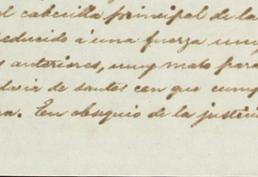 el cabecilla principal de la
reducido á una fuerza muy
s anteriores, muy malo para
de santos con que cump
a. En obsequio de la justici